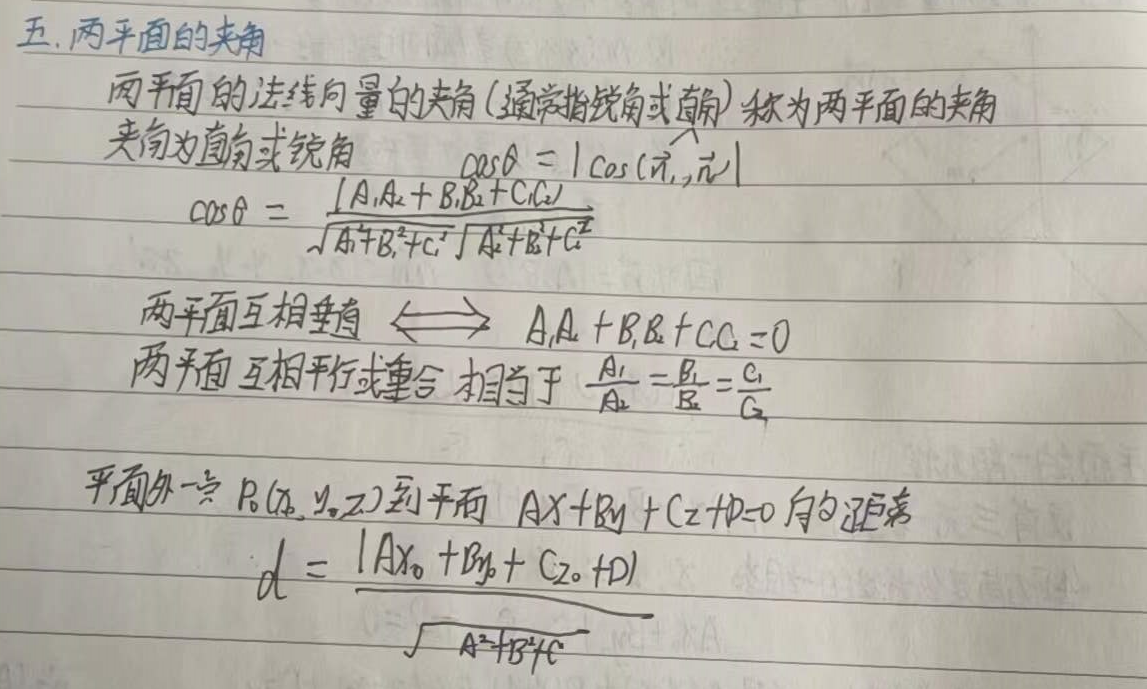 五.两平面的夹角
两平面的法线向量的夹角(通常指锐角或直角)称为两平面的夹角
夹角为直角或锐角 cosθ = |cos(n⃗₁,n⃗₂)|
cosθ = |A₁A₂+B₁B₂+C₁C₂| / √A₁²+B₁²+C₁² √A₂²+B₂²+C₂²
两平面互相垂直 ⟺ A₁A₂+B₁B₂+C₁C₂=0
两平面互相平行或重合 相当于 A₁/A₂ = B₁/B₂ = C₁/C₂
平面外一点 P₀(x₀,y₀,z₀)到平面 Ax+By+Cz+D=0 的距离
d = |Ax₀+By₀+Cz₀+D| / √A²+B²+C